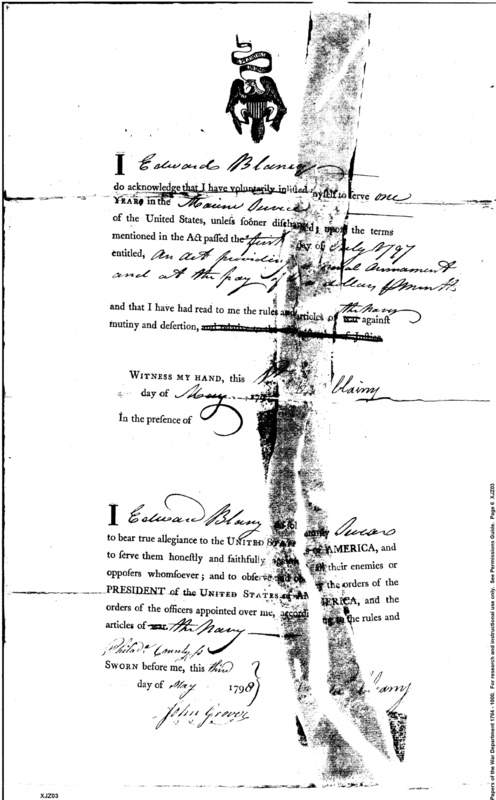 I Edward Blaney
do acknowledge that I have voluntarily inlisted myself to serve one
YEARS in the Marine Service
of the United States, unless sooner discharged; upon the terms
mentioned in the Act passed the first day of July 1797
entitled, An Act providing a naval Armament
and at the pay of dollars pr Month
and that I have had read to me the rules and articles of war the Navy against
mutiny and desertion,
WITNESS MY HAND, this
day of May 179
blainy
In the presence of
I Edward Blany do sol Swear
to bear true allegiance to the UNITED STATES of AMERICA, and
to serve them honestly and faithfully against their enemies or
opposers whomsoever; and to observe and obey the orders of the
PRESIDENT of the UNITED STATES of AMERICA, and the
orders of the officers appointed over me, according to the rules and
articles of war the Navy
Philada County ss
SWORN before me, this third
day of May 1798
John Grover
Papers of the War Department 1784 - 1800. For research and instructional use only. See Permissions Guide. Page 6 XJZ03
XJZ03